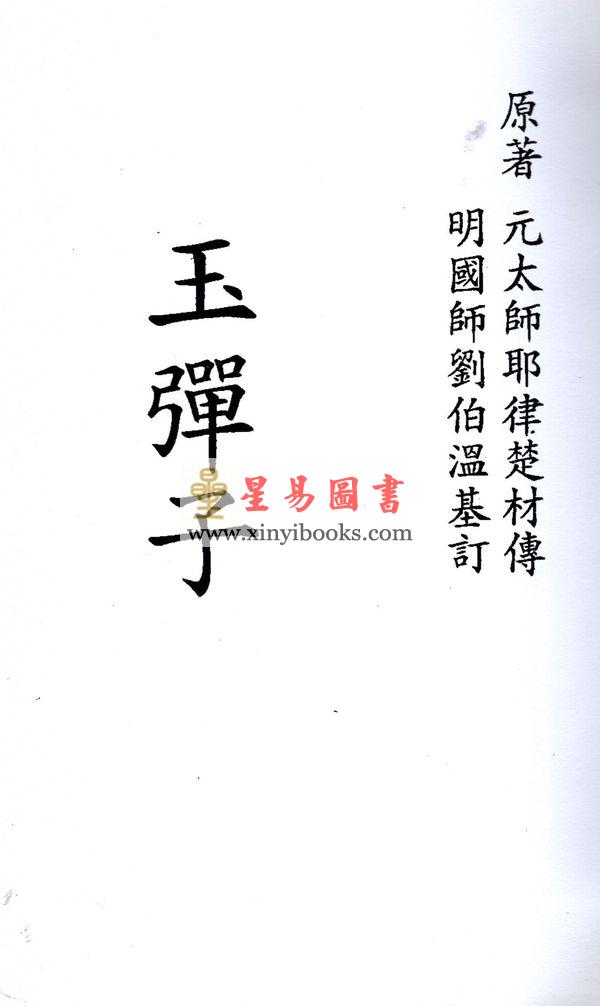 原著 元太師耶律楚材傳
明國師劉伯溫基訂
玉彈子
星易圖書
www.xinyibooks.com